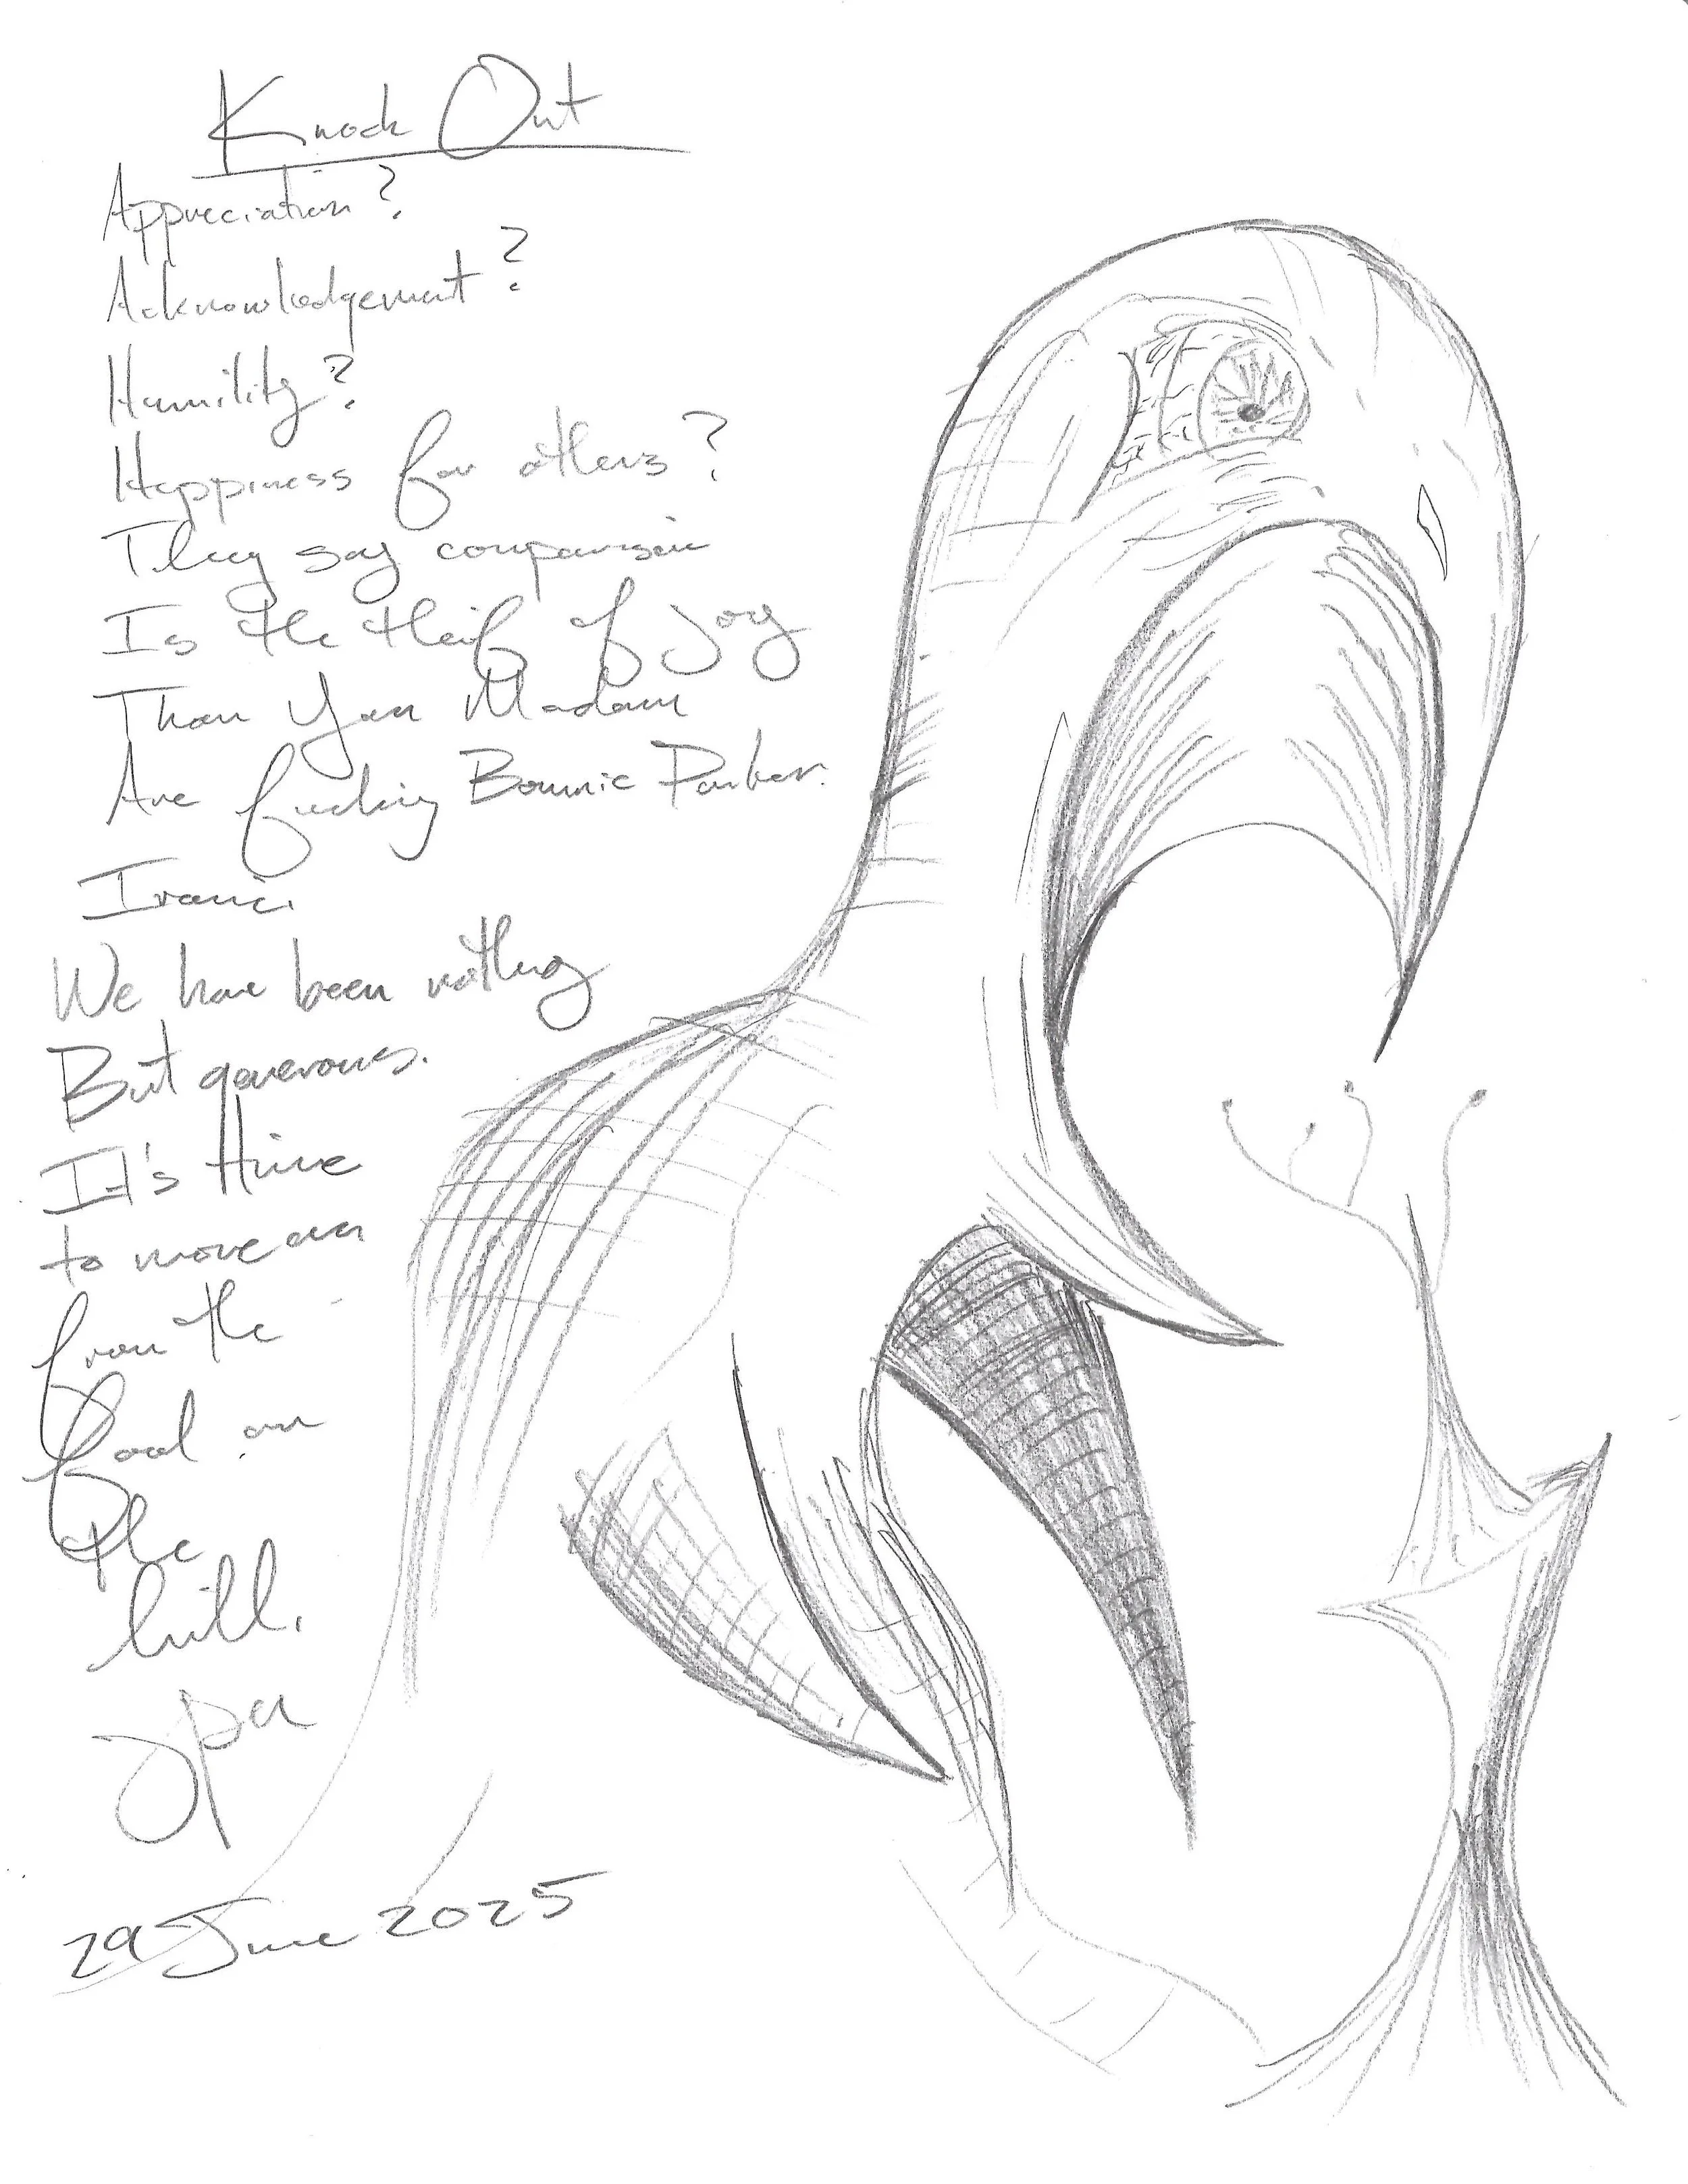 Knock Out
Appreciation?
Acknowledgement?
Humility?
Happiness for others?
They say comparison
Is the theif of Joy
Then You Madam
Are fucking Bonnie Parker.
Ironic.
We have been nothing
But generous.
It's time
to move on
from the
fool on
the
hill.
29 June 2025